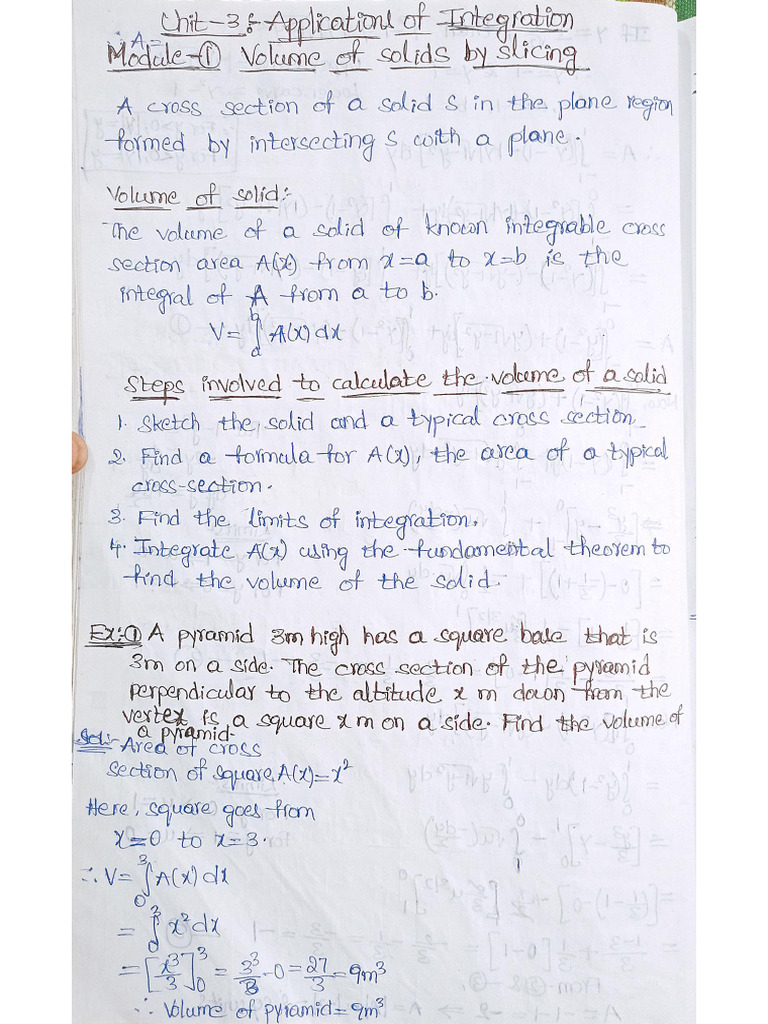 Unit-3:- Applications of Integration
∴ A=
Module-① Volume of solids by slicing
A cross section of a solid S in the plane region
formed by intersecting S with a plane.
Volume of solid:-
The volume of a solid of known integrable cross
section area A(x) from x=a to x=b is the
integral of A from a to b.
V=∫ₐᵇ A(x) dx
Steps involved to calculate the volume of a solid
1. Sketch the solid and a typical cross section.
2. Find a formula for A(x), the area of a typical
cross-section.
3. Find the limits of integration.
4. Integrate A(x) using the fundamental theorem to
find the volume of the solid.
Ex:① A pyramid 3m high has a square base that is
3m on a side. The cross section of the pyramid
perpendicular to the altitude x m down from the
vertex is a square x m on a side. Find the volume of
a pyramid.
Sol:- Area of cross
section of square, A(x)=x²
Here, square goes from
x=0 to x=3.
∴ V=∫₀³ A(x) dx
=∫₀³ x² dx
=[x³/3]₀³ = 3³/3 -0 = 27/3 = 9m³
∴ Volume of pyramid = 9m³